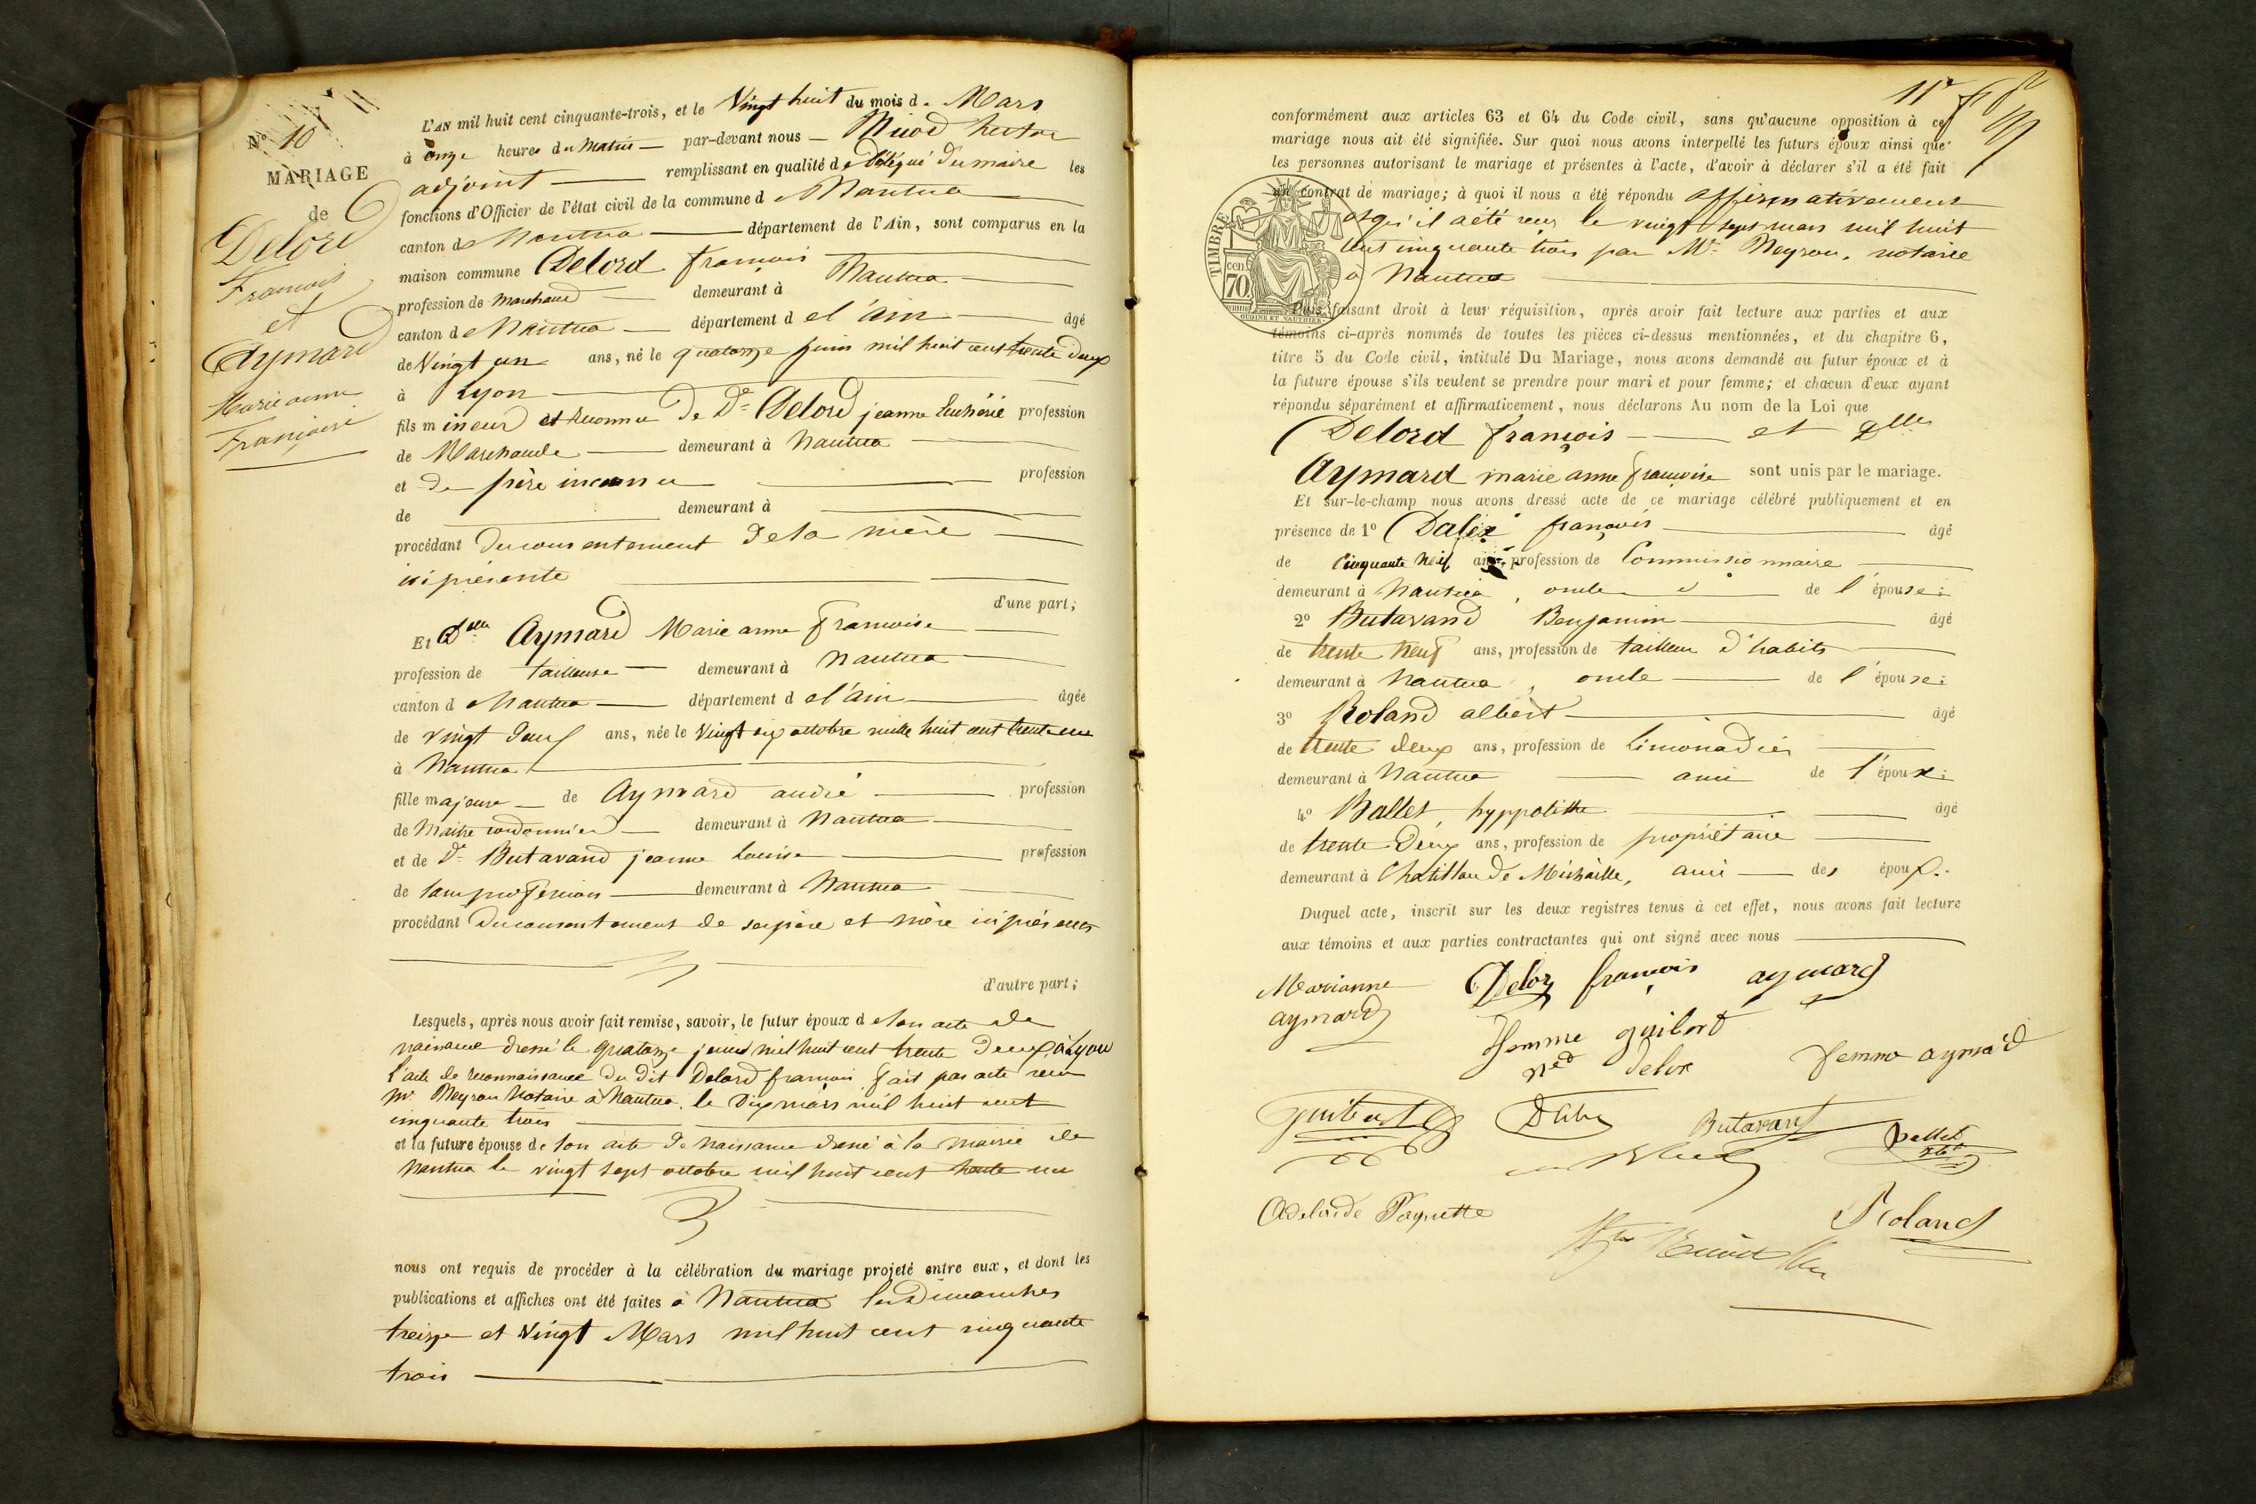 N° 10
MARIAGE
de
Delord
François
et
Aymard
Marie anne
Françoise
L'AN mil huit cent cinquante-trois, et le Vingt huit du mois d. Mars
à onze heures du Matin par-devant nous hector
adjoint remplissant en qualité de délégué du maire les
fonctions d'Officier de l'état civil de la commune de Nantua
canton de Nantua département de l'Ain, sont comparus en la
maison commune Delord françois
profession de Marchand demeurant à Nantua
canton de Nantua département de l'ain âgé
de Vingt un ans, né le quatorze juin mil huit cent trente deux
à Lyon
fils mineur et reconnu de De Delord jeanne profession
de Marchande demeurant à Nantua
et de père inconnu profession
de demeurant à
procédant du consentement de la mère
ici présente
d'une part;
Et Dlle Aymard Marie anne françoise
profession de tailleuse demeurant à Nantua
canton de Nantua département de l'ain âgée
de vingt deux ans, née le Vingt six octobre mille huit cent trente un
à Nantua
fille majeure de Aymard andré profession
de Maitre cordonnier demeurant à Nantua
et de De Butavand jeanne Louise profession
de sans profession demeurant à Nantua
procédant du consentement de ses père et mère ici présents
d'autre part;
Lesquels, après nous avoir fait remise, savoir, le futur époux de son acte de
naissance dressé le quatorze juin mil huit cent trente deux à Lyon
L'acte de reconnaissance du dit Delord françois fait par acte reçu
Mr Meyron Notaire à Nantua le Dix mars mil huit cent
cinquante trois
et la future épouse de son acte de naissance dressé à la mairie de
Nantua le vingt sept octobre mil huit cent trente un
nous ont requis de procéder à la célébration du mariage projeté entre eux, et dont les
publications et affiches ont été faites à Nantua les Dimanches
treize et Vingt Mars mil huit cent cinquante
trois
11e
conformément aux articles 63 et 64 du Code civil, sans qu'aucune opposition à ce
mariage nous ait été signifiée. Sur quoi nous avons interpellé les futurs époux ainsi que
les personnes autorisant le mariage et présentes à l'acte, d'avoir à déclarer s'il a été fait
un contrat de mariage; à quoi il nous a été répondu affirmativement
et qu'il a été reçu le vingt sept mars mil huit
cent cinquante trois par Mr. Meyron, notaire
à Nantua
TIMBRE
cen.
70.
Puis, faisant droit à leur réquisition, après avoir fait lecture aux parties et aux
témoins ci-après nommés de toutes les pièces ci-dessus mentionnées, et du chapitre 6,
titre 5 du Code civil, intitulé Du Mariage, nous avons demandé au futur époux et à
la future épouse s'ils veulent se prendre pour mari et pour femme; et chacun d'eux ayant
répondu séparément et affirmativement, nous déclarons Au nom de la Loi que
Delord françois et Dlle
Aymard marie anne françoise sont unis par le mariage.
Et sur-le-champ nous avons dressé acte de ce mariage célébré publiquement et en
présence de 1° françois âgé
de Cinquante Neuf ans, profession de Commissionnaire
demeurant à Nantua, oncle de l'épouse:
2° Butavand Benjamin âgé
de trente Neuf ans, profession de tailleur d'habits
demeurant à Nantua, oncle de l'épouse:
3° Roland albert âgé
de trente deux ans, profession de Limonadier
demeurant à Nantua ami de l'époux:
4° Ballet, hyppolithe âgé
de trente Deux ans, profession de propriétaire
demeurant à Chatillon de Michaille, ami des époux.
Duquel acte, inscrit sur les deux registres tenus à cet effet, nous avons fait lecture
aux témoins et aux parties contractantes qui ont signé avec nous
Marianne
aymard
Delor françois aymard
femme guibert
née delor
femme aymard
guibert
Butavant
Ballet
Adelaïde Paquette
Roland